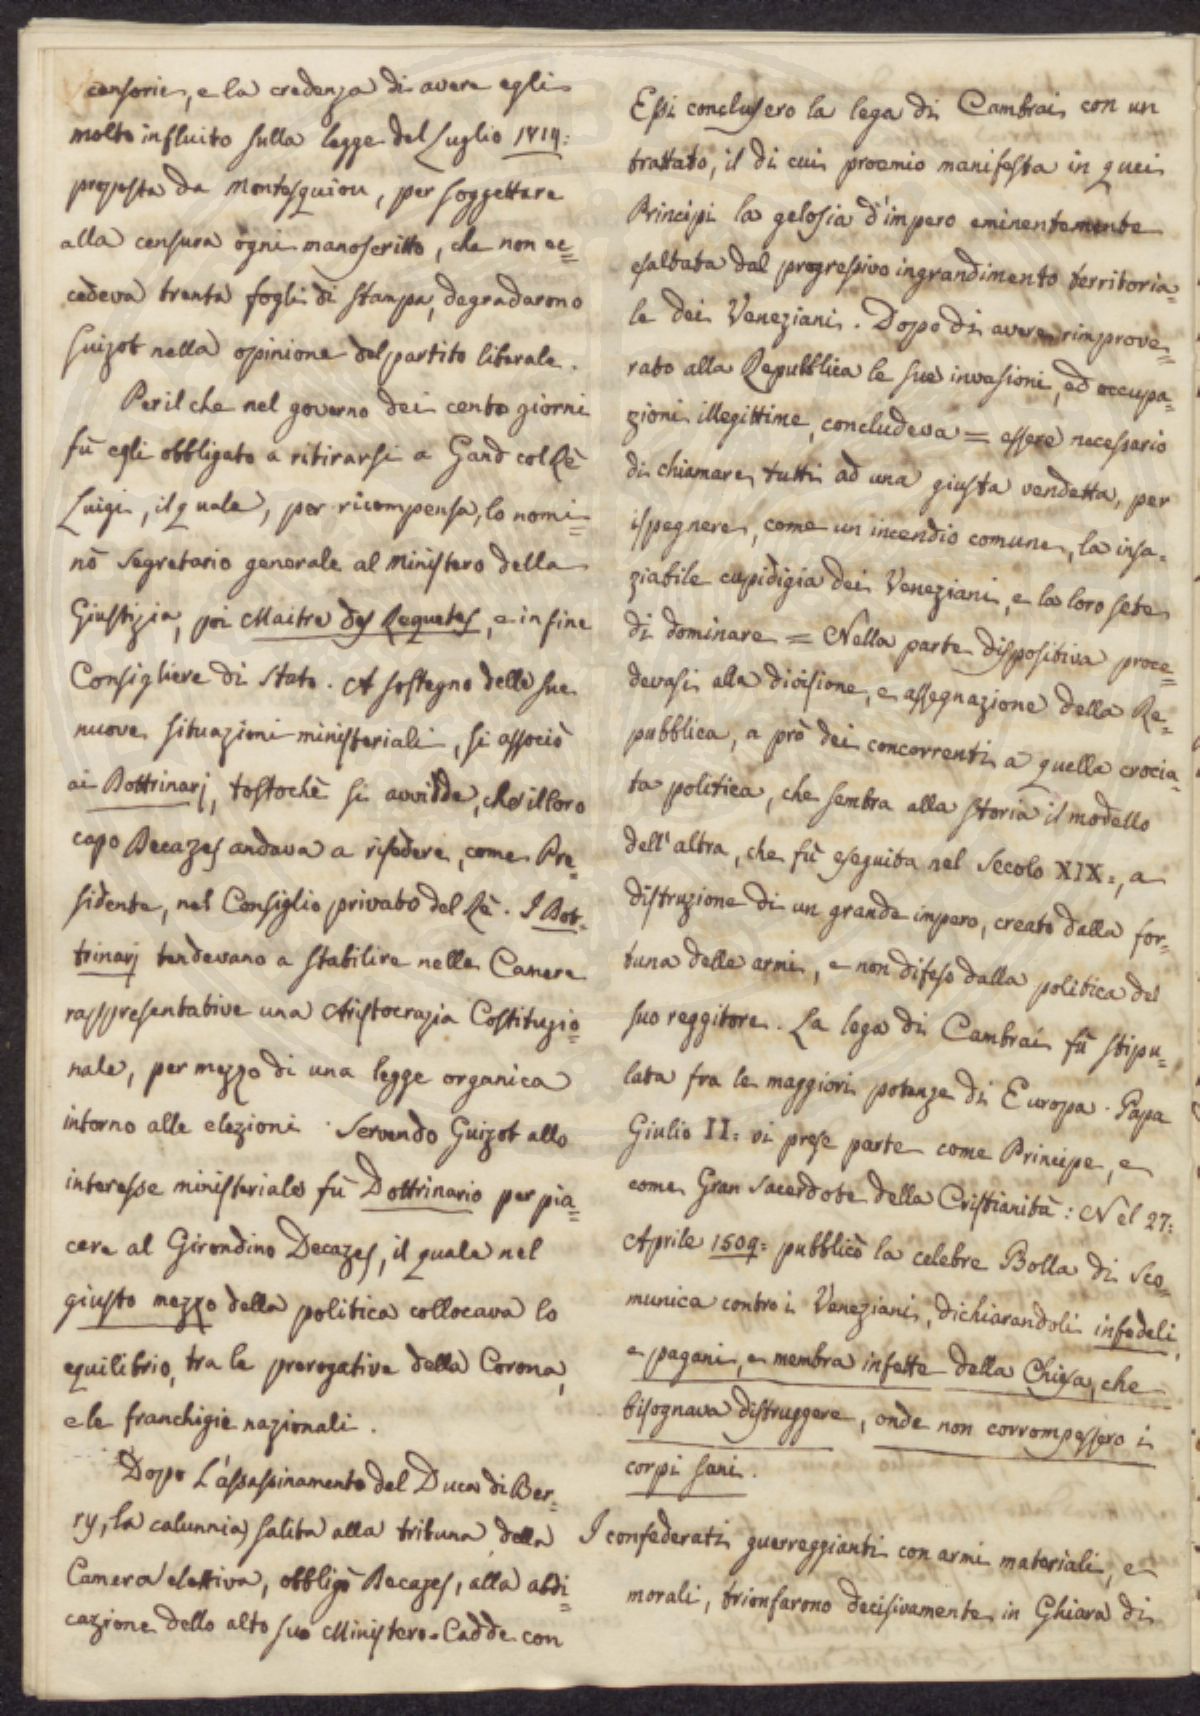 censorie, e la credenza di avere egli
molto influito sulla legge del Luglio 1814:
proposta da Montesquiou, per soggettare
alla censura ogni manoscritto, che non ec=
cedeva trenta fogli di stampa, degradarono
Guizot nella opinione del partito liberale.
Per il che nel governo dei cento giorni
fù egli obbligato a ritirarsi a Gand col Rè
Luigi, il quale, per ricompensa, lo nomi=
nò Segretario generale al Ministero della
Giustizia, poi Maitre des Requetes, e in fine
Consigliere di Stato. A sostegno delle sue
nuove situazioni ministeriali, si associò
ai Dottrinarj, tostochè si avvidde, che il loro
capo Decazes andava a risedere, come Pre=
sidente, nel Consiglio privato del Rè. I Dot=
trinarj tendevano a stabilire nelle Camere
rappresentative una Aristocrazia Costituzio=
nale, per mezzo di una legge organica
intorno alle elezioni. Servendo Guizot allo
interesse ministeriale fù Dottrinario per pia=
cere al Girondino Decazes, il quale nel
giusto mezzo della politica collocava lo
equilibrio, tra le prerogative della Corona,
e le franchigie nazionali.
Dopo L'assassinamento del Duca di Ber=
ry, la calunnia, salita alla tribuna della
Camera elettiva, obbligò Decazes, alla abdi=
cazione dello alto suo Ministero. Cadde con
Essi conclusero la lega di Cambrai con un
trattato, il di cui proemio manifesta in quei
Principi la gelosia d'impero eminentemente
esaltata dal progressivo ingrandimento territoria=
le dei Veneziani. Dopo di avere rimprove=
rato alla Repubblica le sue invasioni, ed occupa=
zioni illegittime, concludeva = essere necessario
di chiamare tutti ad una giusta vendetta, per
ispegnere, come un incendio comune, la insa=
ziabile cupidigia dei Veneziani, e la loro sete
di dominare = Nella parte dispositiva proce=
devasi alla divisione, e assegnazione della Re=
pubblica, a prò dei concorrenti a quella crocia=
ta politica, che sembra alla storia il modello
dell'altra, che fù eseguita nel Secolo XIX:, a
distruzione di un grande impero, creato dalla for=
tuna delle armi, e non difeso dalla politica del
suo reggitore. La lega di Cambrai fù stipu=
lata fra le maggiori potenze di Europa. Papa
Giulio II: vi prese parte come Principe, e
come Gran Sacerdote della Cristianità: Nel 27:
Aprile 1509: pubblicò la celebre Bolla di Sco=
munica contro i Veneziani, dichiarandoli infedeli,
e pagani, e membra infette della Chiesa, che
bisognava distruggere, onde non corrompessero i
corpi sani.
I confederati guerreggianti con armi materiali, e
morali, trionfarono decisivamente in Ghiara di